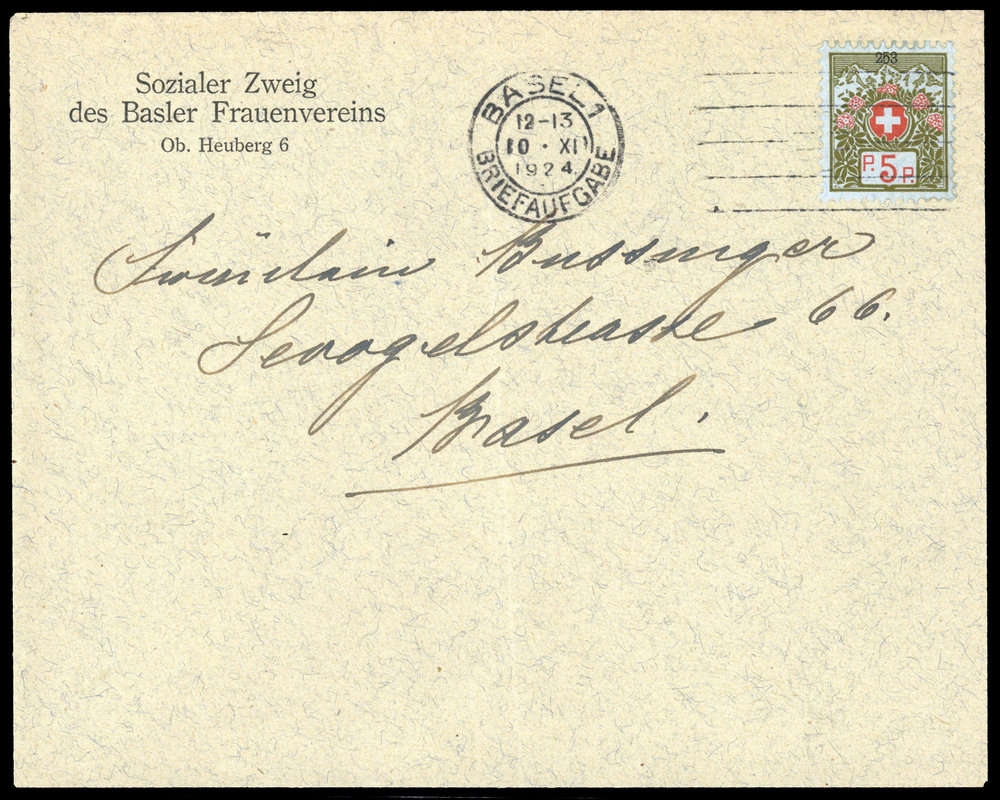 Sozialer Zweig
des Basler Frauenvereins
Ob. Heuberg 6
BASEL 1
12-13
10 · XI
1924
BRIEFAUFGABE
253
P. 5 P.
Fräulein Bussinger
Sevogelstrasse 66.
Basel.